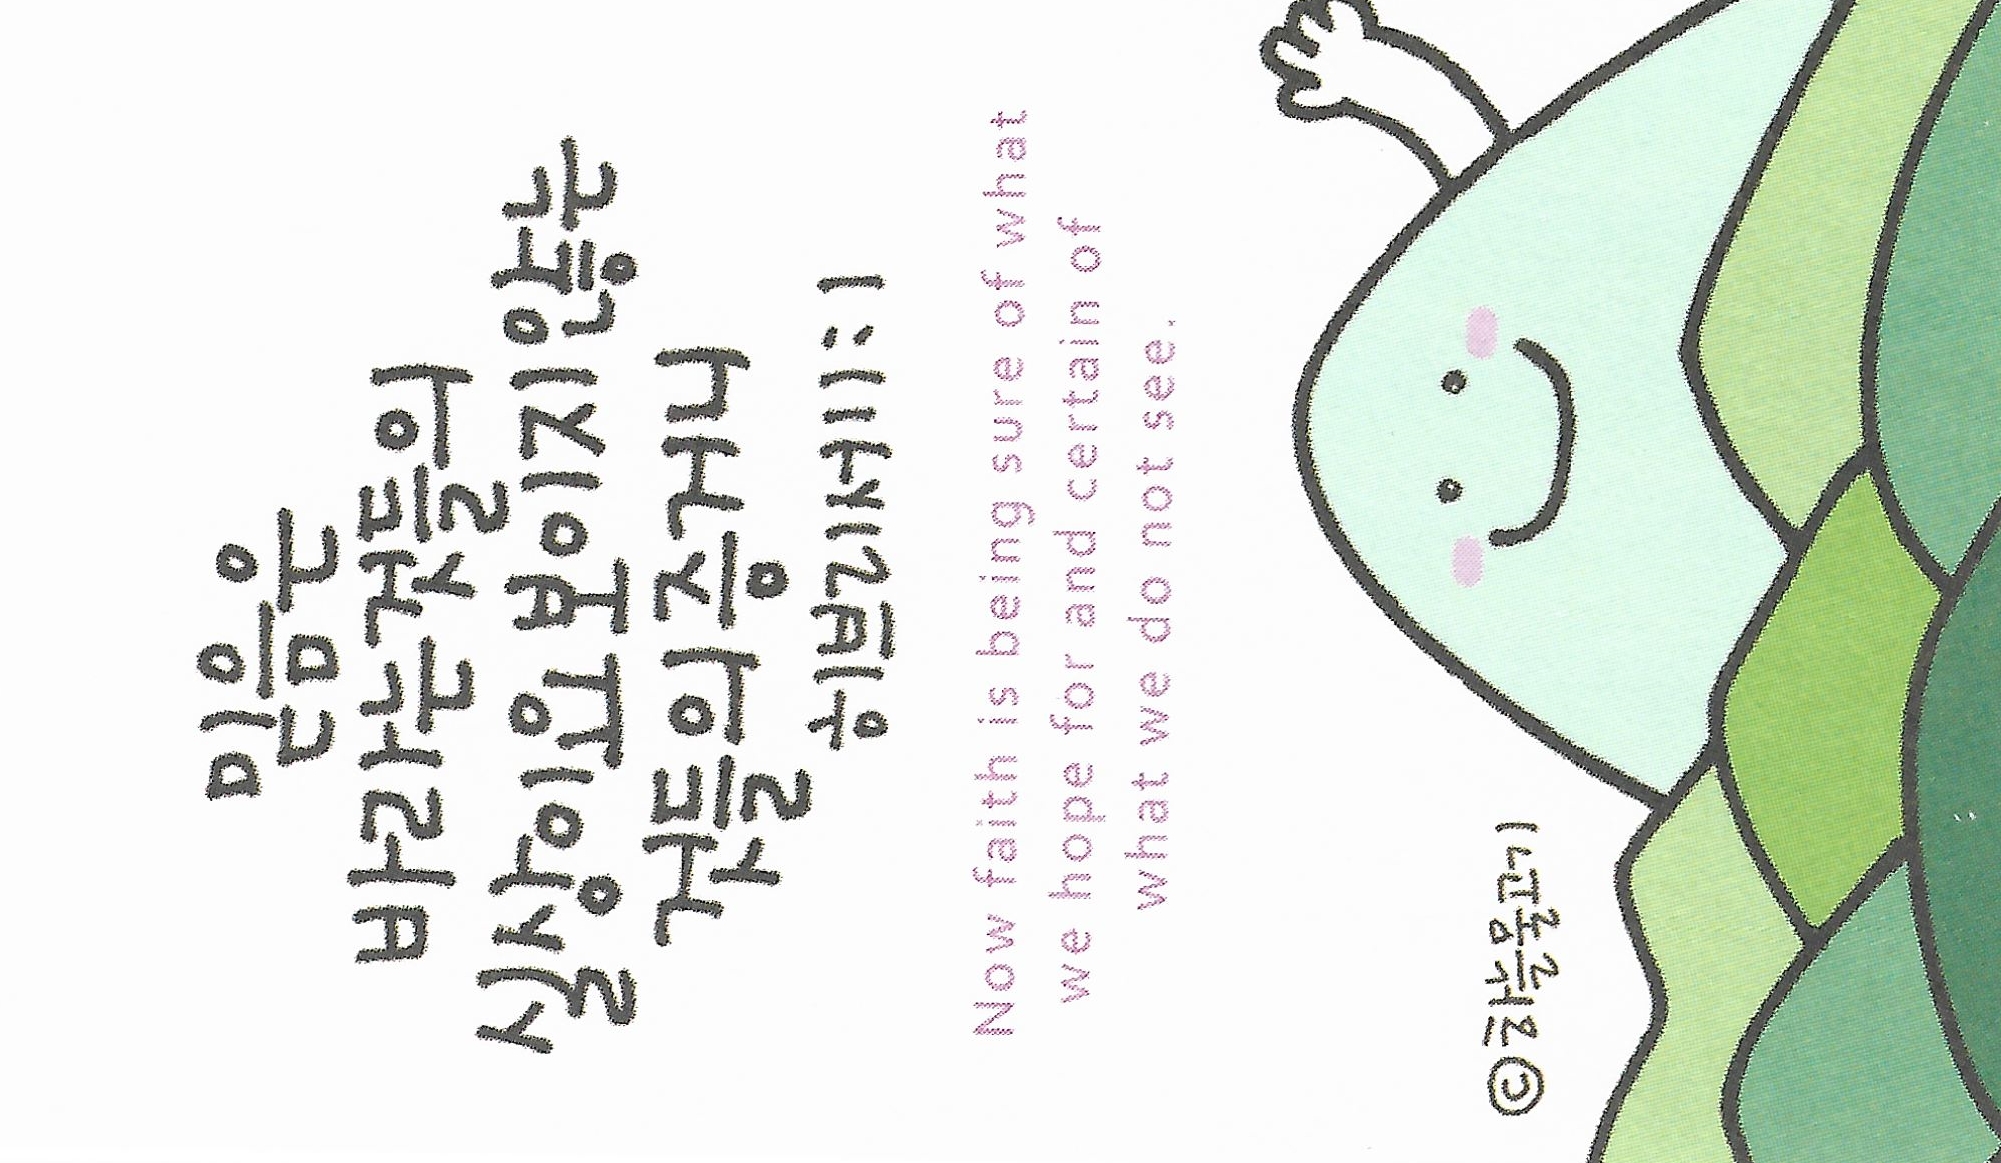 믿음은
바라는것들의
실상이요 보이지 않는
것들의 증거니
히브리서 11:1
Now faith is being sure of what
we hope for and certain of
what we do not see.
© 하늘물고기